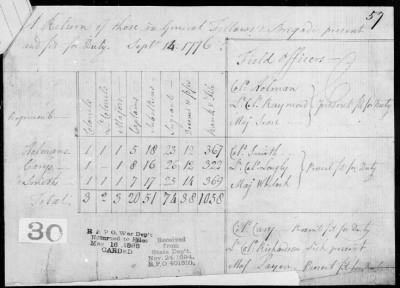 57
A Return of those in General Fellows's Brigade present
and fit for Duty. Sept 14. 1776
Field Officers
Regiments
Colonels
Lt Colonels
Majors
Captains
Subalterns
Sergeants
Drums & Fifes
Rank & File
Holmans 1 1 1 5 18 23 12 367
Carys 1 1 8 16 26 12 322
Smith 1 1 1 7 17 25 14 369
Total 3 2 3 20 51 74 38 1058
Colo Holman
Lt Col. Raymond present fit for Duty
Maj
Colo Smith
Lt Col Present fit for Duty
Maj
Colo Cary Present fit for Duty
Lt Col Richardson Sick present
Maj Present fit for Duty
30
R & P O, War Dep't
Returned to Files
May 16 1898
CARDED
Received
from
State Dep't.
Nov. 24 1894.
R.P.O. 401510.